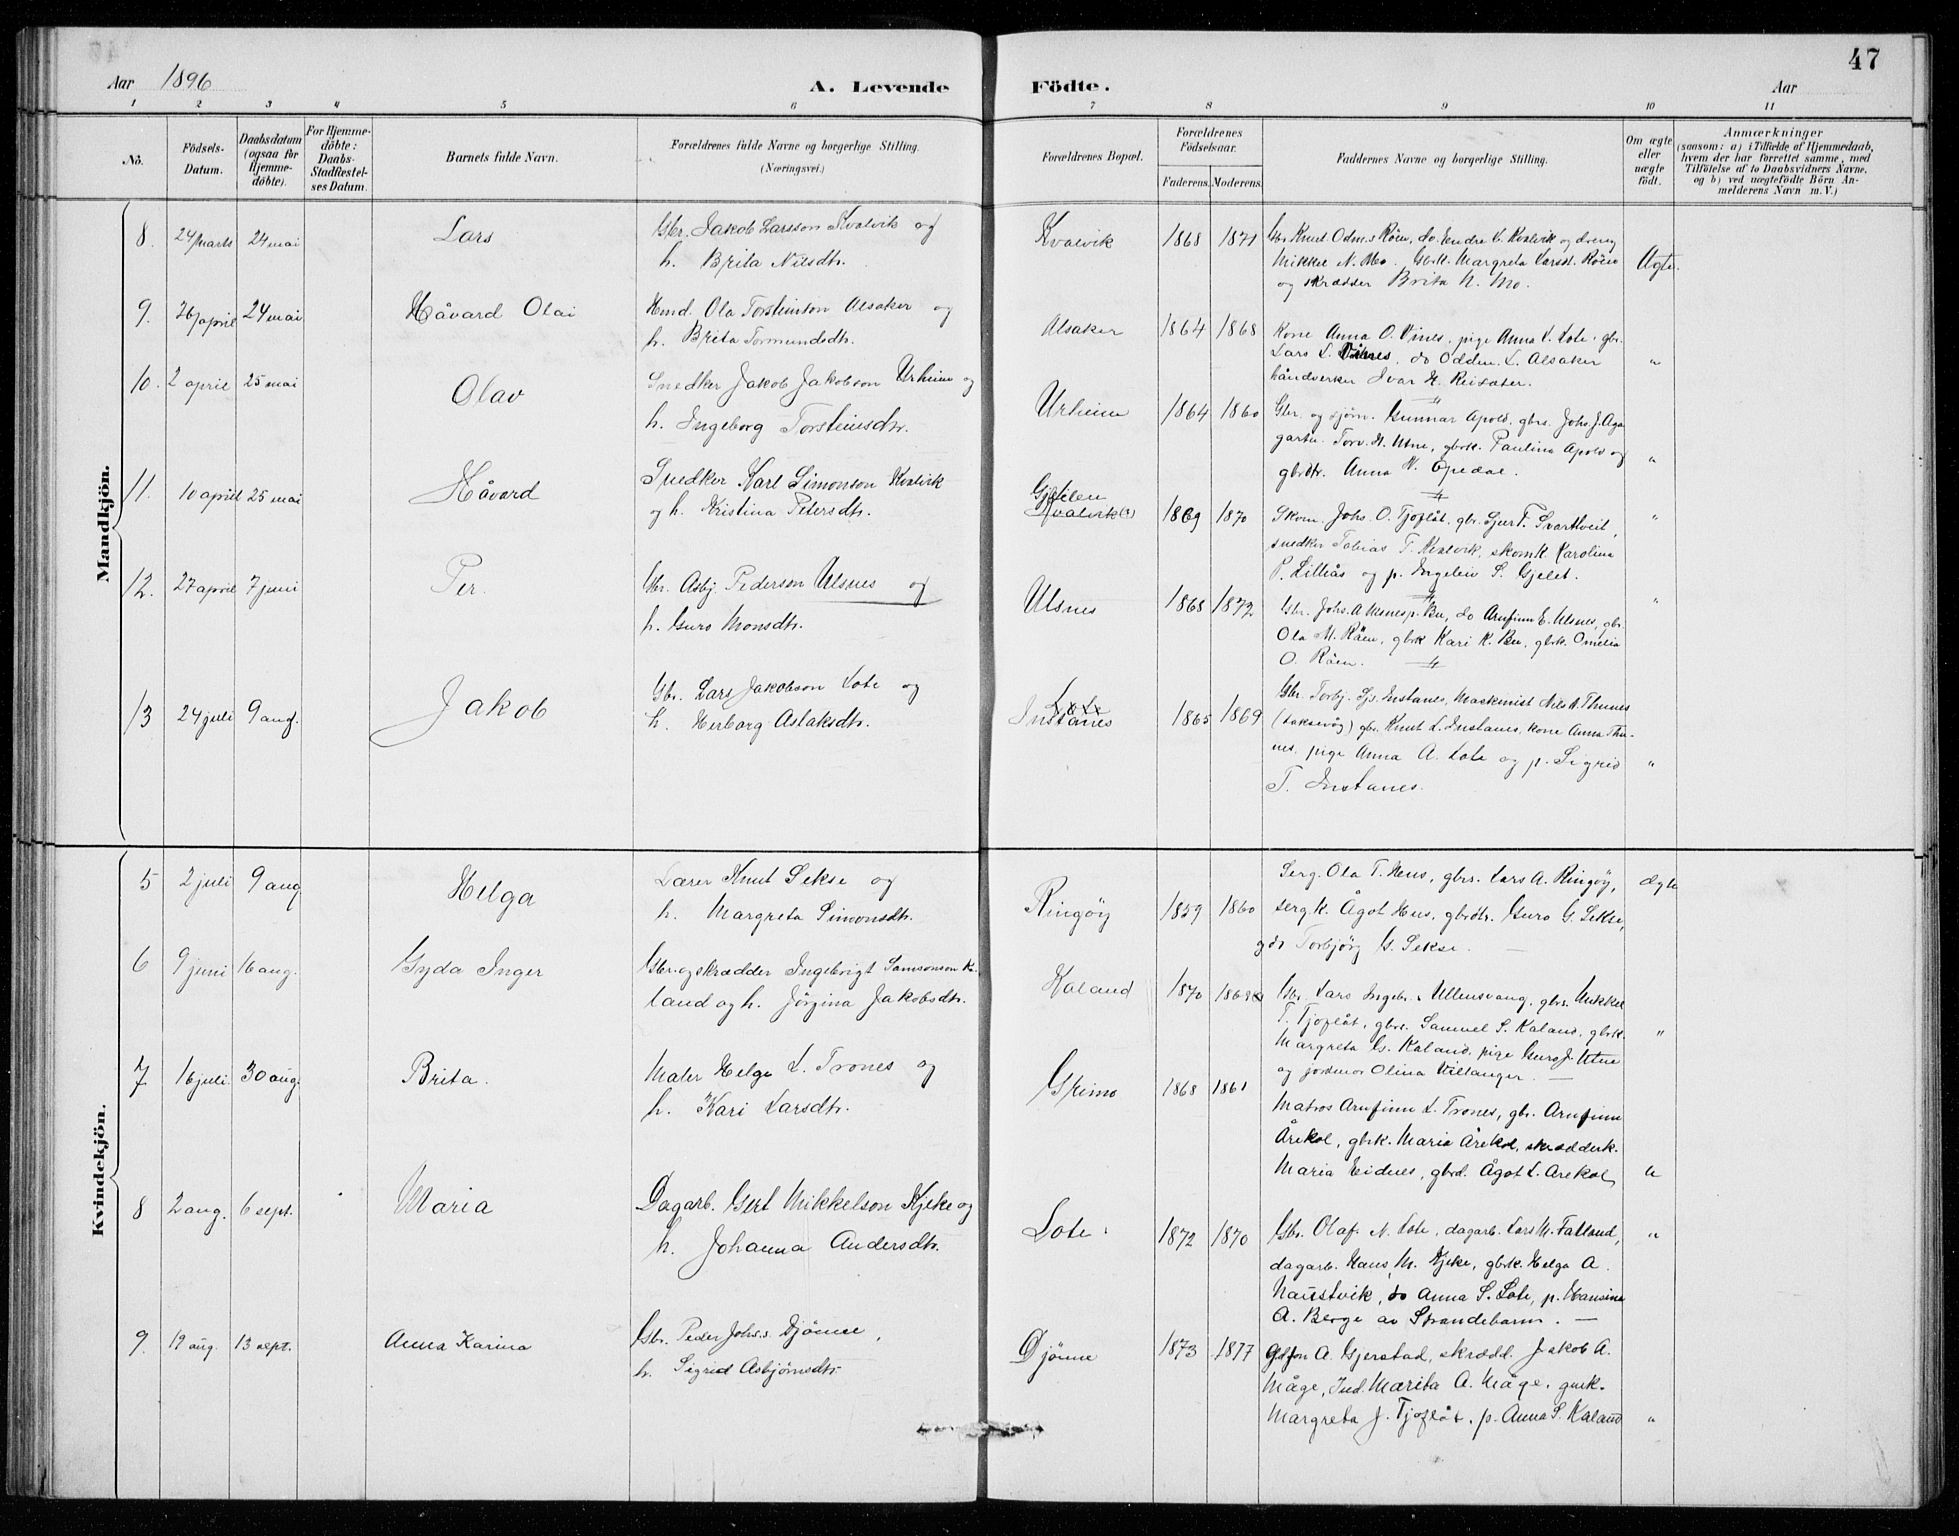 47
Aar 1896
A. Levende Födte.
Aar
1 2 3 4 5 6 7 8 9 10 11
No. Födsels-Datum. Daabsdatum (ogsaa for Hjemme-döbte). For Hjemme-döbte: Daabs-Stadfestel-ses Datum. Barnets fulde Navn. Forældrenes fulde Navne og borgerlige Stilling. (Næringsvei.) Forældrenes Bopæl. Forældrenes Födselsaar. Faderens. Moderens. Faddernes Navne og borgerlige Stilling. Om ægte eller uægte födt. Anmærkninger (saasom: a) i Tilfælde af Hjemmedaab, hvem der har forrettet samme, med Tilföielse af to Daabsvidners Navne, og b) ved uægtefödte Börn Anmelderens Navn m. V.)
Mandkjön.
8. 24 marts 24 mai Lars Gbr. Jakob Larsson Kvalvik og
h. Brita Nilsdtr.
Kvalvik 1868 1871 Gbr. Knut Odms Röen, do. Endre L. Kvalvik og dreng
Mikkel N. Mo. Gbrk. Margreta Larsd. Röen
og skrædder Brita N. Mo. Ægte.
9. 26 april 24 mai Håvard Olai Hmd. Ola Torsteinson Alsaker og
h. Brita Tormundsdtr.
Alsaker 1864 1868 Kone Anna O. Vines, pige Anna L. Lote, gbr.
Lars L. Vines, do Oddm. L. Alsaker
håndverker Ivar H. Reisæter. "
10. 2 april 25 mai Olav Snedker Jakob Jakobson Urheim og
h. Ingeborg Torsteinsdtr.
Urheim 1864 1860 Gbr. og sjöm. Gunnar Apold, gbrs. Johs. J. Aga
gartn. Torv. H. Utne, gbrk. Paulina Apold og
gbrdtr. Anna W. Opedal. "
11. 10 april 25 mai Håvard Snedker Karl Simonson Kvalvik
og h. Kristina Petersdtr.
Gjetlen
Kvalvik 1869 1870 Skom. Johs. O. Tjoflåt, gbr. Sjur T. Svartveit,
snedker Tobias T. Kvalvik, skomk. Karolina
P. Lilleås og p. Ingeleiv S. Gjelet. "
12. 27 april 7 juni Per. Gbr. Asbj. Pederson Ulsnes og
h. Guro Monsdtr.
Ulsnes 1868 1872 Gbr. Johs. A. Ulsnes p. Bu, do Arnfinn E. Ulsnes, gbr.
Ola M. Råen, gbrk Kari K. Bu, gbrk. Omelia
O. Råen. "
13 24 juli 9 aug. Jakob Gbr. Lars Jakobson Lote og
h. Herborg Aslaksdtr.
Lote
Instanes 1865 1869 Gbr. Torbj. Sjs. Instanes, Maskinist Nils A. Thunes
(Laksevåg) gbr. Knut L. Instanes, kone Anna Thu-
nes, pige Anna A. Lote og p. Sigrid
T. Instanes. "
Kvindekjön.
5 2 juli 9 aug. Helga Lærer Knut Sekse og
h. Margreta Simonsdtr.
Ringöy 1859 1860 Serg. Ola T. Hus, gbrs. Lars A. Ringöy,
serg.k. Ågot Hus, gbrdtr. Guro G. Sekse,
og do Torbjörg G. Sekse. ægte
6 9 juni 16 aug. Gyda Inger Gbr. og skrædder Ingebrigt Samsonson Ka-
land og h. Jörgina Jakobsdtr.
Kaland 1870 1869 Gbr. Lars Ingebr.s Ullensvang, gbrs. Mikkel
T. Tjoflåt, gbrs. Samuel S. Kaland, gbrk.
Margreta G. Kaland, pige Guro J. Utne
og jordmor Olina Villanger. "
7 16 juli. 30 aug. Brita. Maler Helge L. Trones og
h. Kari Larsdtr.
Grimo 1868 1861 Matros Arnfinn L. Trones, gbr. Arnfinn
Årekol, gbrk. Maria Årekol, skrædderk.
Maria Eidnes, gbrd. Ågot L. Arekol "
8 2 aug. 6 sept. Maria Dagarb. Gert Mikkelson Kjeke og
h. Johanna Andersdtr.
Lote 1872 1870 Gbr. Olaf N. Lote, dagarb. Lars M. Fatland,
dagarb. Hans M. Kjeke, gbrk. Helga A.
Naustvik, do Anna S. Lote, p. Hansina
A. Berge av Strandebarm. "
9. 19 aug. 13 sept. Anna Karina Gbr. Peder Johs.s. Djönne,
h. Sigrid Asbjörnsdtr.
Djönne 1873 1877 A. Gjerstad, skrædd. Jakob A.
Måge, Ind. Marita A. Måge, gmk.
Margreta J. Tjoflåt, p. Anna S. Kaland "